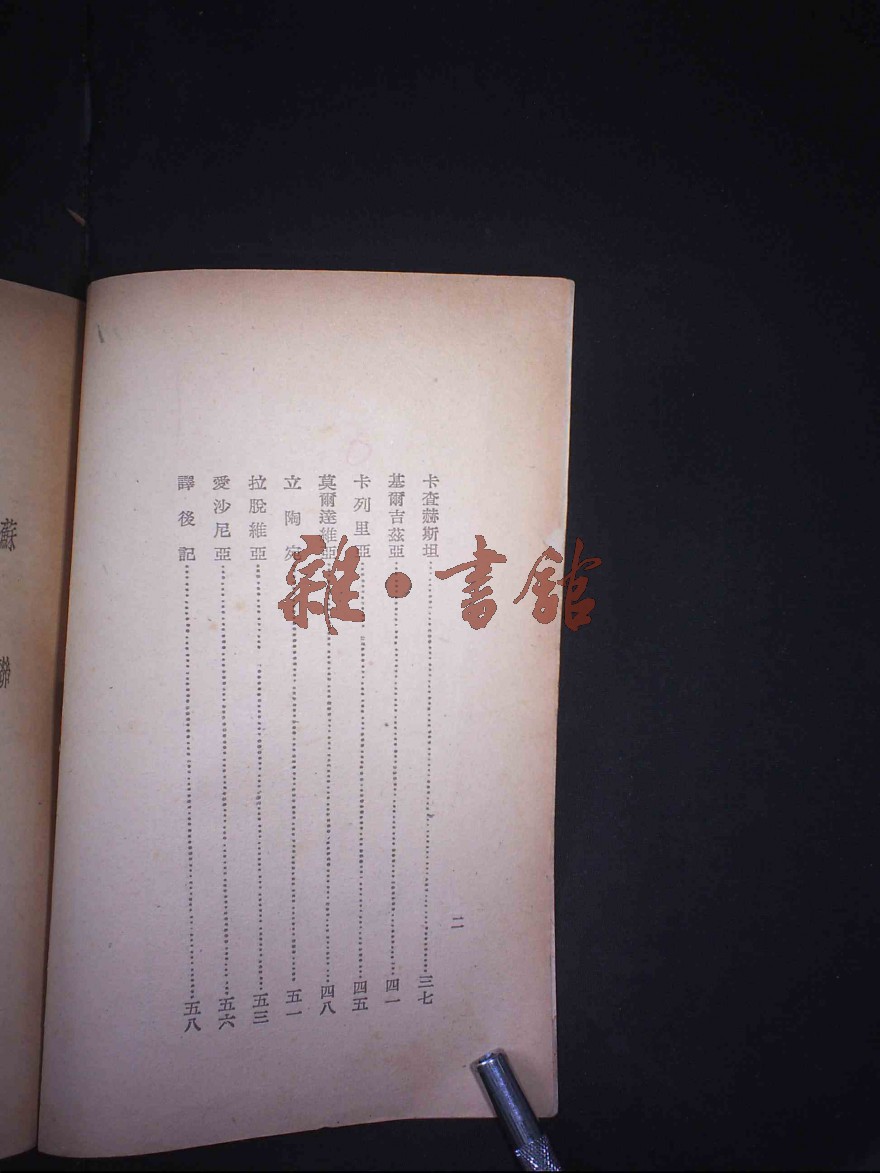 卡查赫斯坦……三七
基爾吉茲亞……四一
卡列里亞……四五
莫爾達維亞……四八
立陶宛……五一
拉脫維亞……五三
愛沙尼亞……五六
譯後記……五八
二
雜·書館
蘇聯